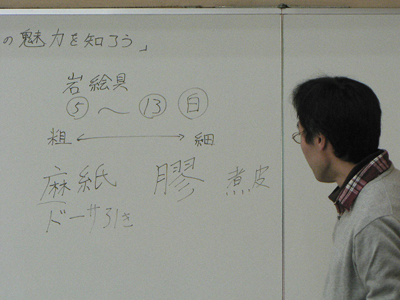 の魅力を知ろう」
岩絵具
⑤〜⑬ 白
粗 ←→ 細
麻紙 膠 煮皮
ドーサ引き